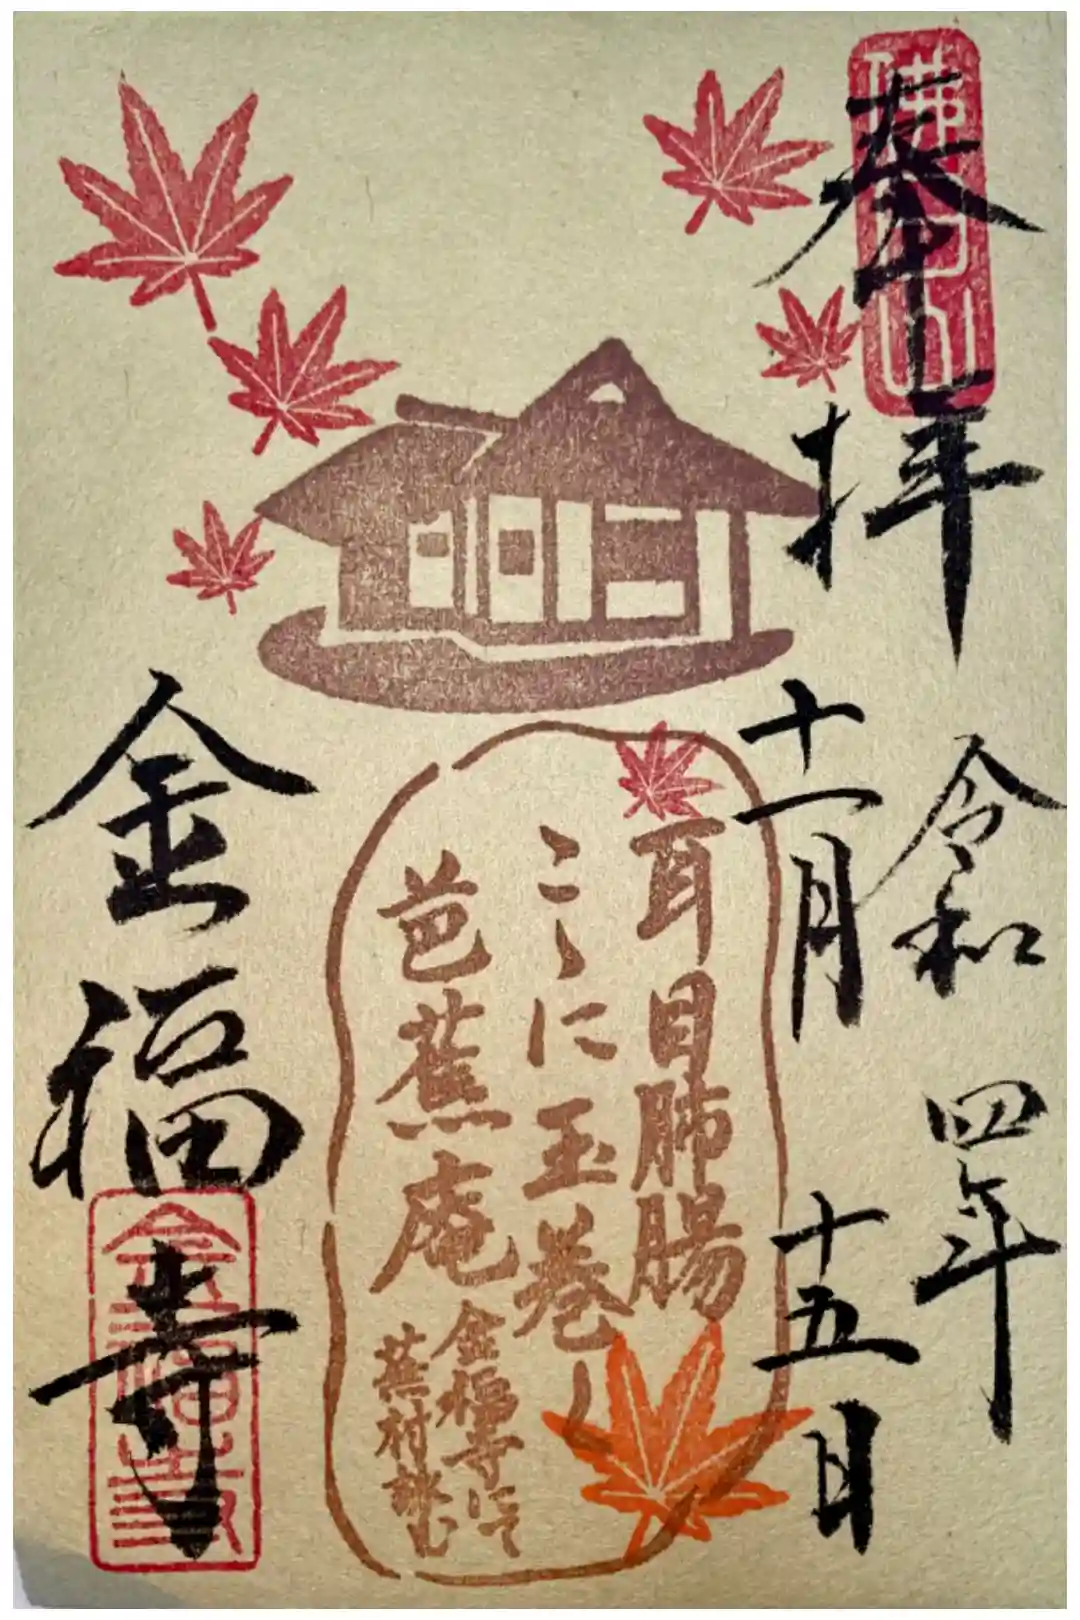 佛日山
奉拝
令和四年
十一月十五日
耳目肺腸
こゝに玉巻く
芭蕉庵
金福寺にて
蕪村詠む
金福寺
金福寺